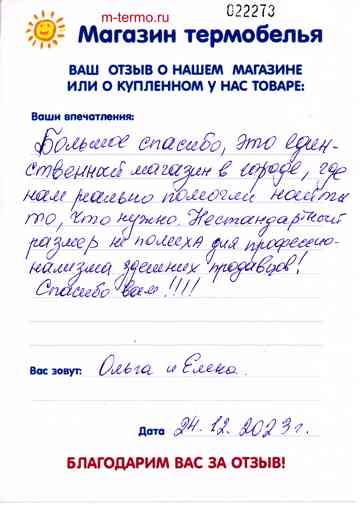 022273
m-termo.ru
Магазин термобелья
ВАШ ОТЗЫВ О НАШЕМ МАГАЗИНЕ
ИЛИ О КУПЛЕННОМ У НАС ТОВАРЕ:
Ваши впечатления:
Большое спасибо, это един-
ственный магазин в городе, где
нам реально помогли найти
то, что нужно. Нестандартный
размер не помеха для профессио-
нализма здешних продавцов!
Спасибо вам!!!!
Вас зовут: Ольга и Елена.
Дата 24.12.2023г.
БЛАГОДАРИМ ВАС ЗА ОТЗЫВ!